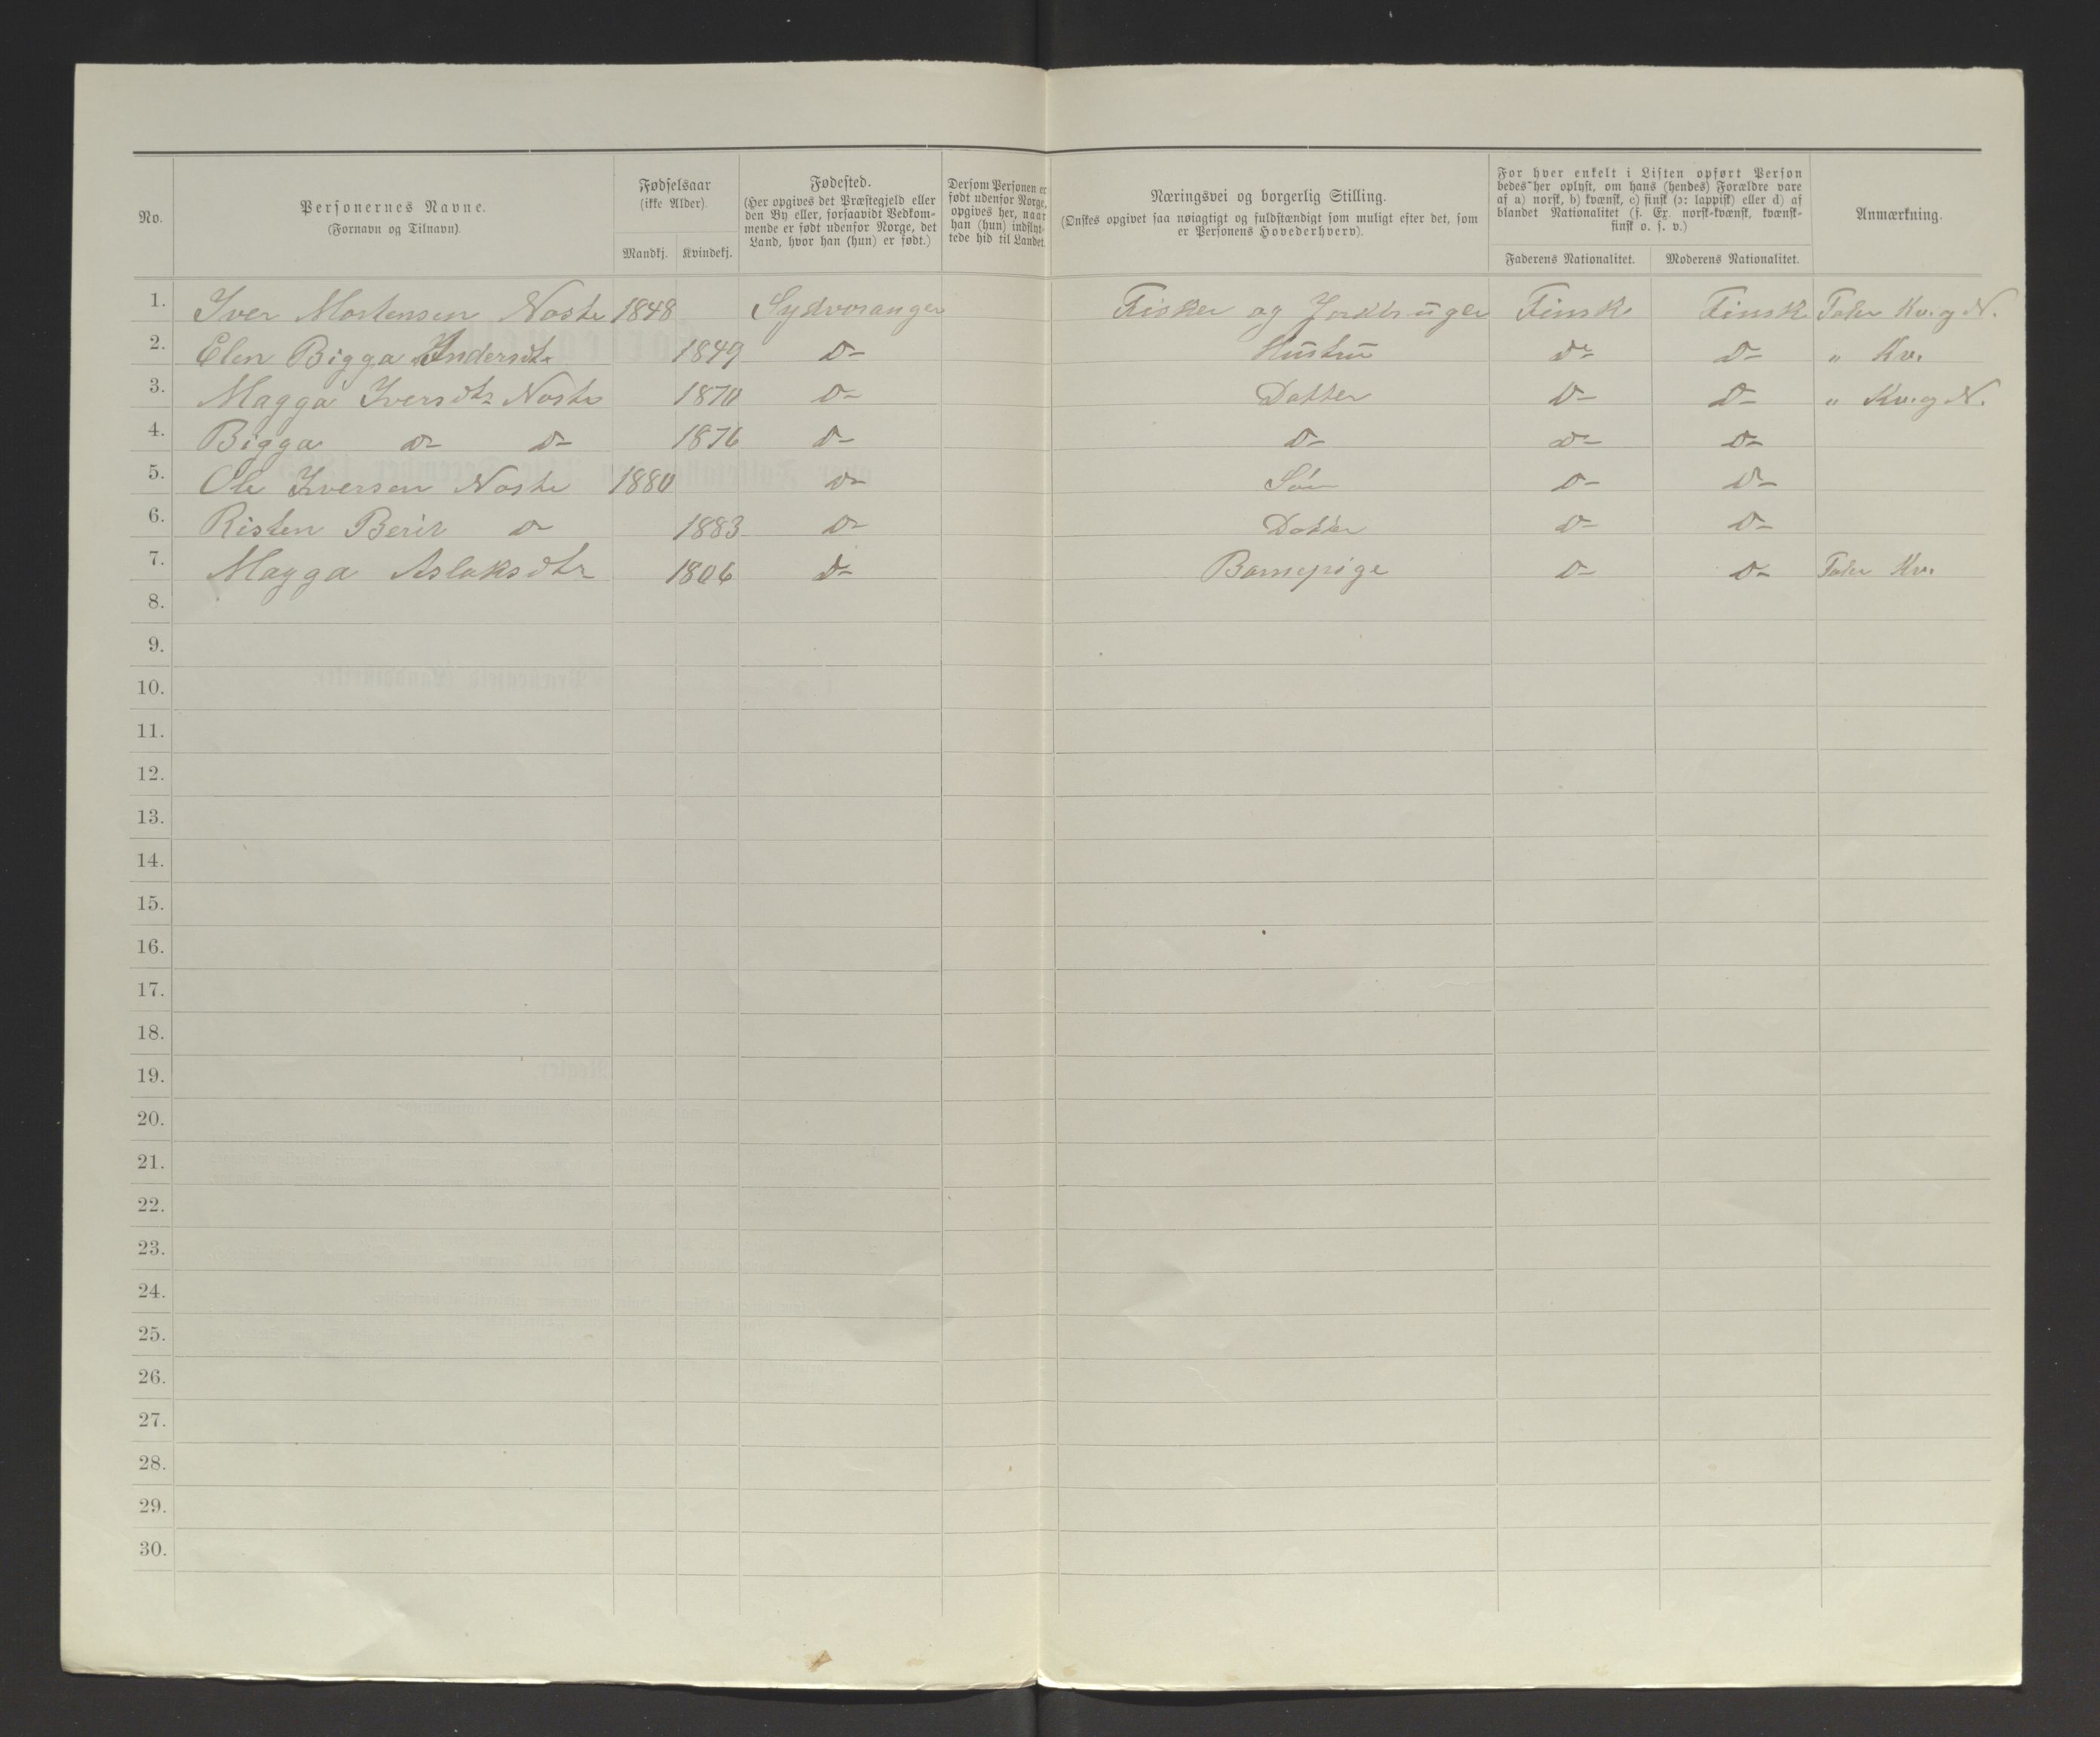 No.
Personernes Navne.
(Fornavn og Tilnavn).
Fødselsaar
(ikke Alder).
Mandkj. Kvindekj.
Fødested.
(Her opgives det Præstegjeld eller
den By eller, forsaavidt Vedkom-
mende er født udenfor Norge, det
Land, hvor han (hun) er født.)
Dersom Personen er
født udenfor Norge,
opgives her, naar
han (hun) indflyt-
tede hid til Landet.
Næringsvei og borgerlig Stilling.
(Ønskes opgivet saa nøiagtigt og fuldstændigt som muligt efter det, som
er Personens Hovederhverv).
For hver enkelt i Listen opført Person
bedes her oplyst, om hans (hendes) Forældre vare
af a) norsk, b) kvænsk, c) finsk (ɔ: lappisk) eller d) af
blandet Nationalitet (f. Ex. norsk-kvænsk, kvænsk-
finsk o. s. v.)
Faderens Nationalitet. Moderens Nationalitet.
Anmærkning.
1. Iver Mortensen Noste 1848 Sydvaranger Fisker og Jordbruger Finsk Finsk Taler Kv. og N.
2. Elen Bigga Andersdtr 1849 Do Hustru Do Do " Kv.
3. Magga Iversdtr Noste 1870 Do Datter Do Do " Kv. og N.
4. Bigga Do Do 1876 Do Do Do Do
5. Ole Iversen Noste 1880 Do Søn Do Do
6. Risten Berit Do 1883 Do Datter Do Do
7. Magga Aslaksdtr 1806 Do Barnepige Do Do Taler Kv.
8.
9.
10.
11.
12.
13.
14.
15.
16.
17.
18.
19.
20.
21.
22.
23.
24.
25.
26.
27.
28.
29.
30.